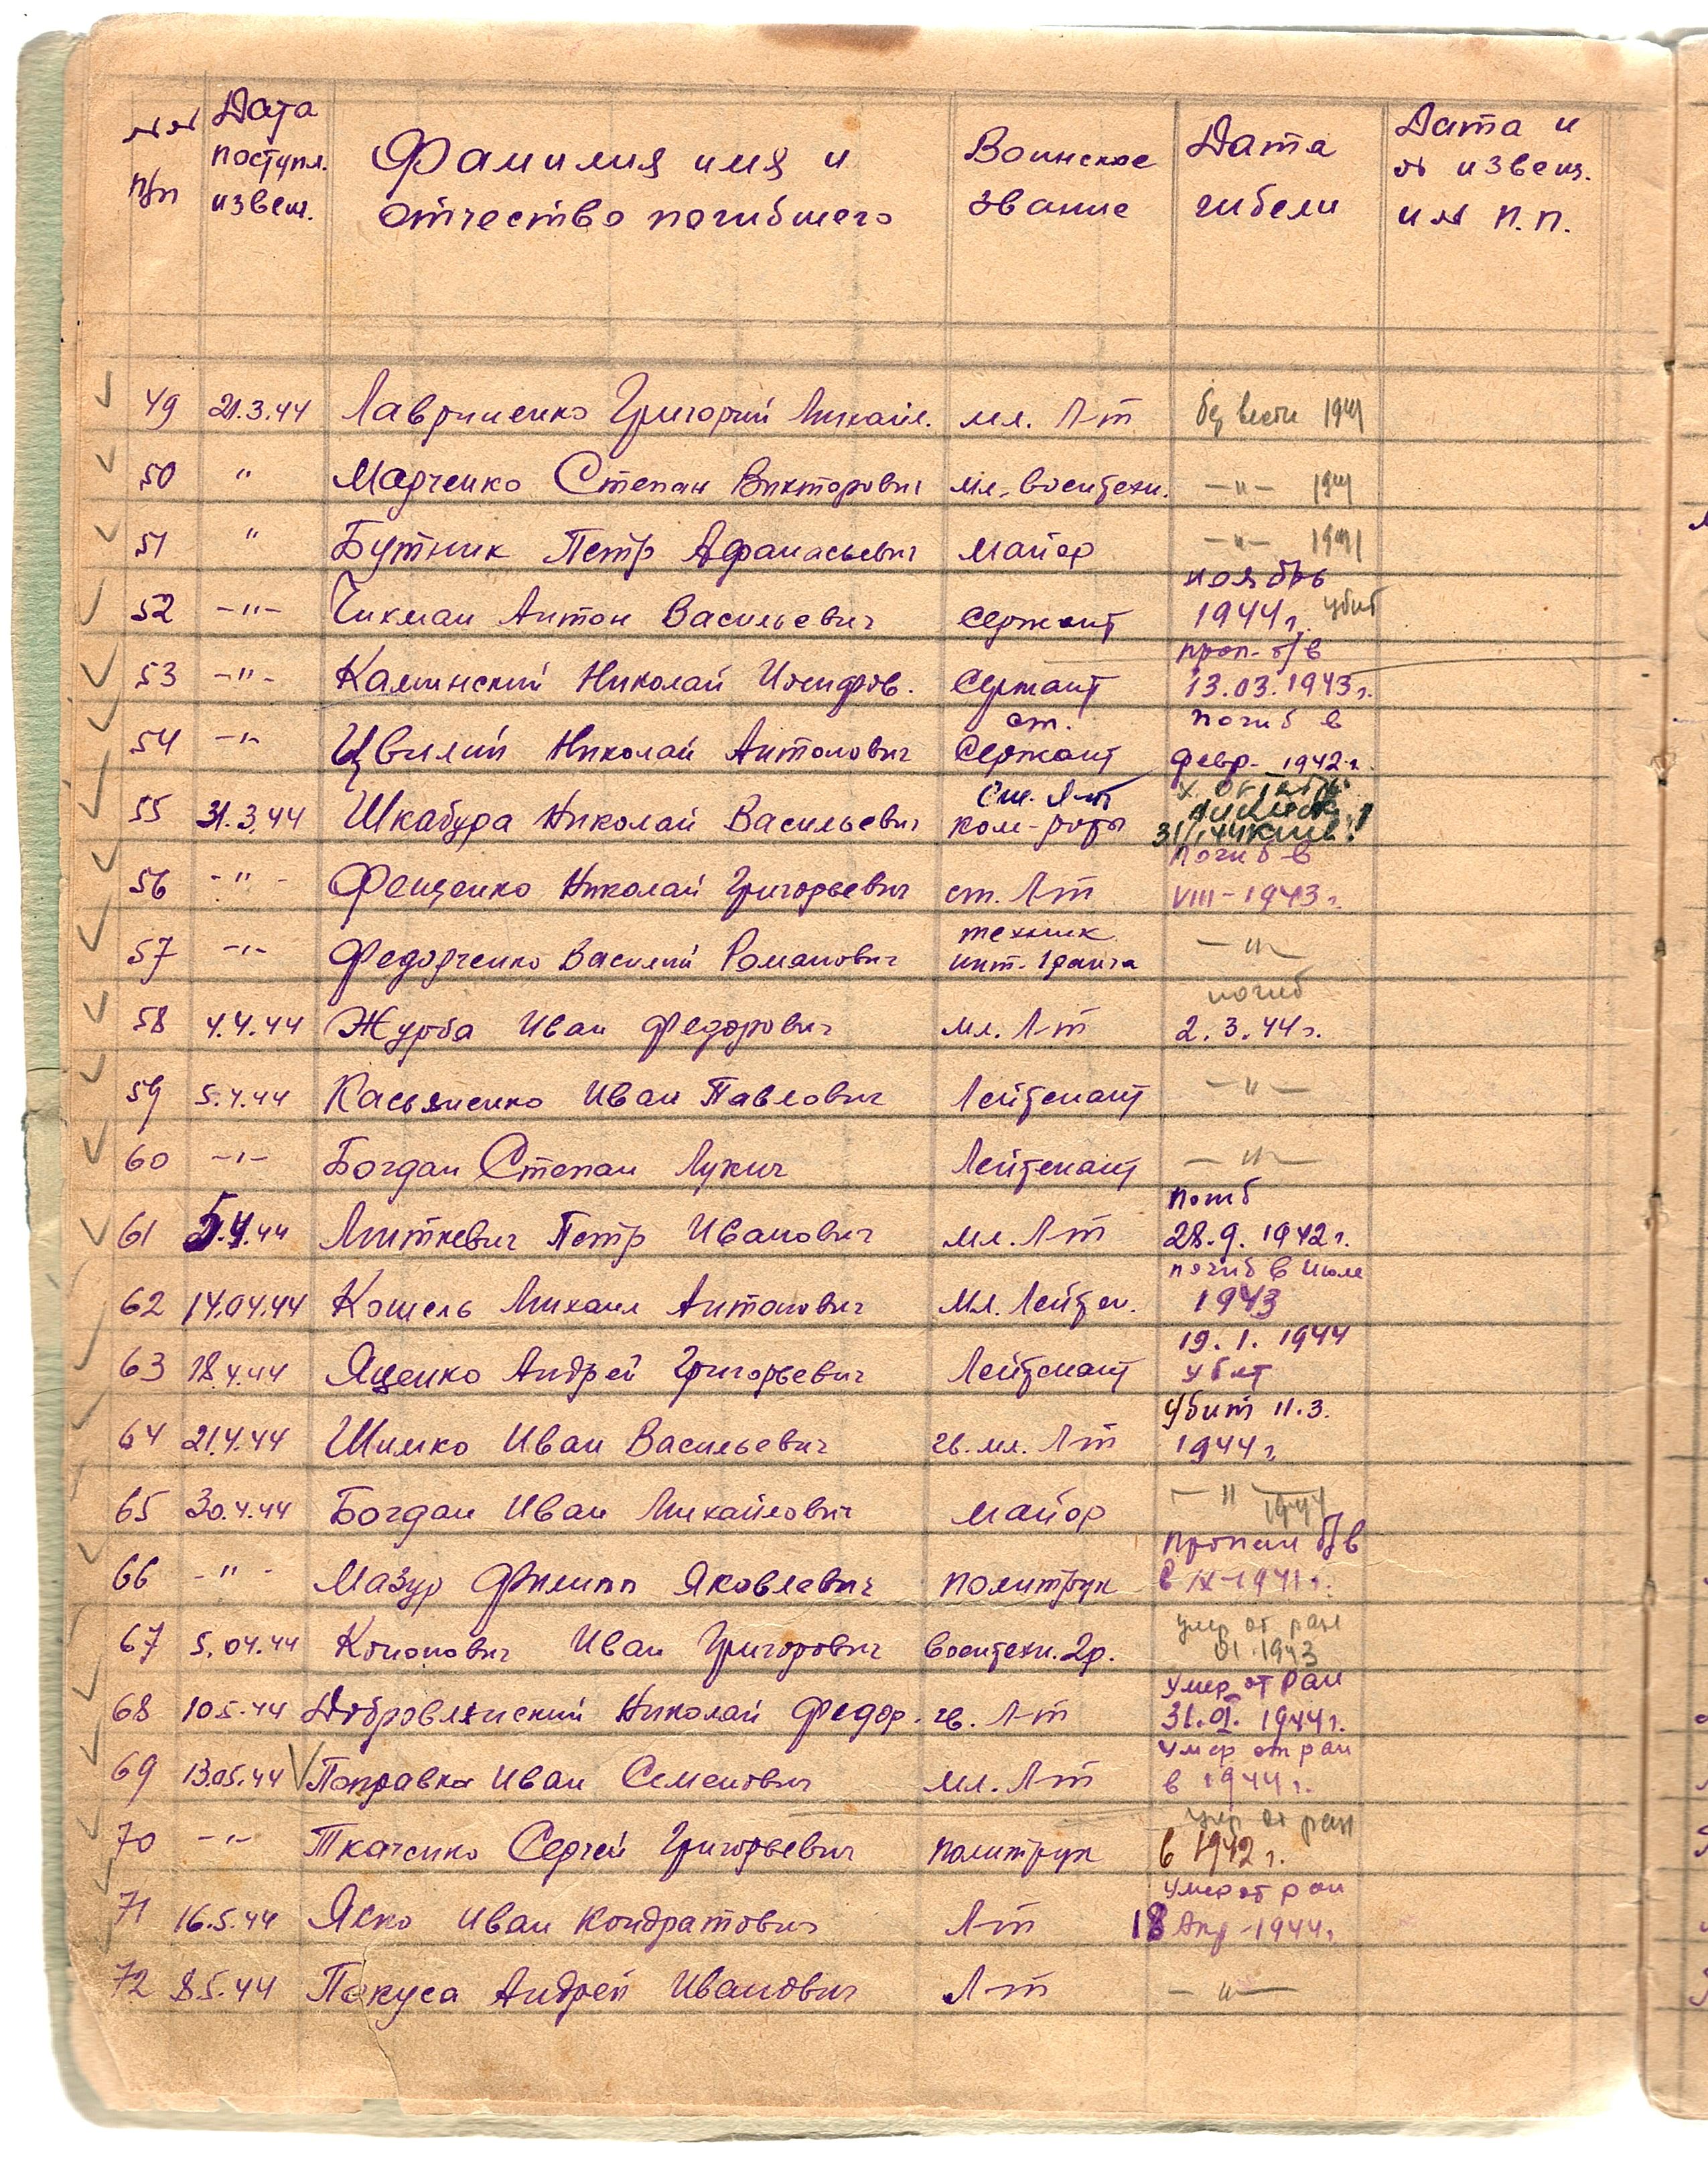 №№ п/п
Дата поступл. извещ.
Фамилия имя и отчество погибшего
Воинское звание
Дата гибели
Дата и № извещ. и № п.п.
49 21.3.44 Лавриненко Григорий Михайл. мл. Л-т без вести 1941
50 " Марченко Степан Викторович мл. воентехн. —"— 1941
51 " Бутник Петр Афанасьевич майор —"— 1941
ноябрь
52 —"— Чикман Антон Васильевич Сержант 1944 г. убит
проп. б/в
53 —"— Каминский Николай Иосифов. Сержант 13.03.1943 г.
ст. погиб в
54 —"— Цвилий Николай Антонович Сержант февр. 1942 г.
Ст. Л-т
55 31.3.44 Шкабура Николай Васильевич ком-роты
погиб в
56 —"— Фещенко Николай Григорьевич ст. Л-т VIII-1943 г.
техник —"—
57 —"— Федорченко Василий Романович инт. 1 ранга
погиб
58 4.4.44 Журба Иван Федорович мл. Л-т 2.3.44 г.
59 5.4.44 Касьяненко Иван Павлович Лейтенант —"—
60 —"— Богдан Степан Лукич Лейтенант —"—
погиб
61 5.4.44 Миткевич Петр Иванович мл. Л-т 28.9.1942 г.
погиб в июле
62 14.04.44 Кошель Михаил Антонович Мл. Лейтен. 1943
19.1.1944
63 18.4.44 Яценко Андрей Григорьевич Лейтенант убит
Убит 11.3.
64 21.4.44 Шимко Иван Васильевич гв. мл. Л-т 1944 г.
65 30.4.44 Богдан Иван Михайлович майор —"— 1944
пропал б/в
66 —"— Мазур Филипп Яковлевич политрук в IX-1941 г.
умер от ран
67 5.04.44 Кононович Иван Григорович воентехн. 2р. 01.1943
Умер от ран
68 10.5.44 Добровлянский Николай Федор. гв. Л-т 31.01.1944 г.
умер от ран
69 13.05.44 Поправка Иван Семенович мл. Л-т в 1944 г.
умер от ран
70 —"— Ткаченко Сергей Григорьевич политрук в 1942 г.
умер от ран
71 16.5.44 Яско Иван Кондратович Л-т 18 Апр-1944 г.
72 8.5.44 Покуса Андрей Иванович Л-т —"—